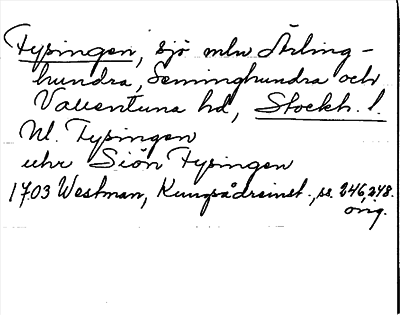 Fysingen, sjö mlw Ärling-
hundra, Seminghundra och
Vallentuna hd, Stockh. l.
Ul. Fysingen
uhr Siön Fysingen
1703 Westman, Kungsådreinst., ss. 246, 248.
orig.